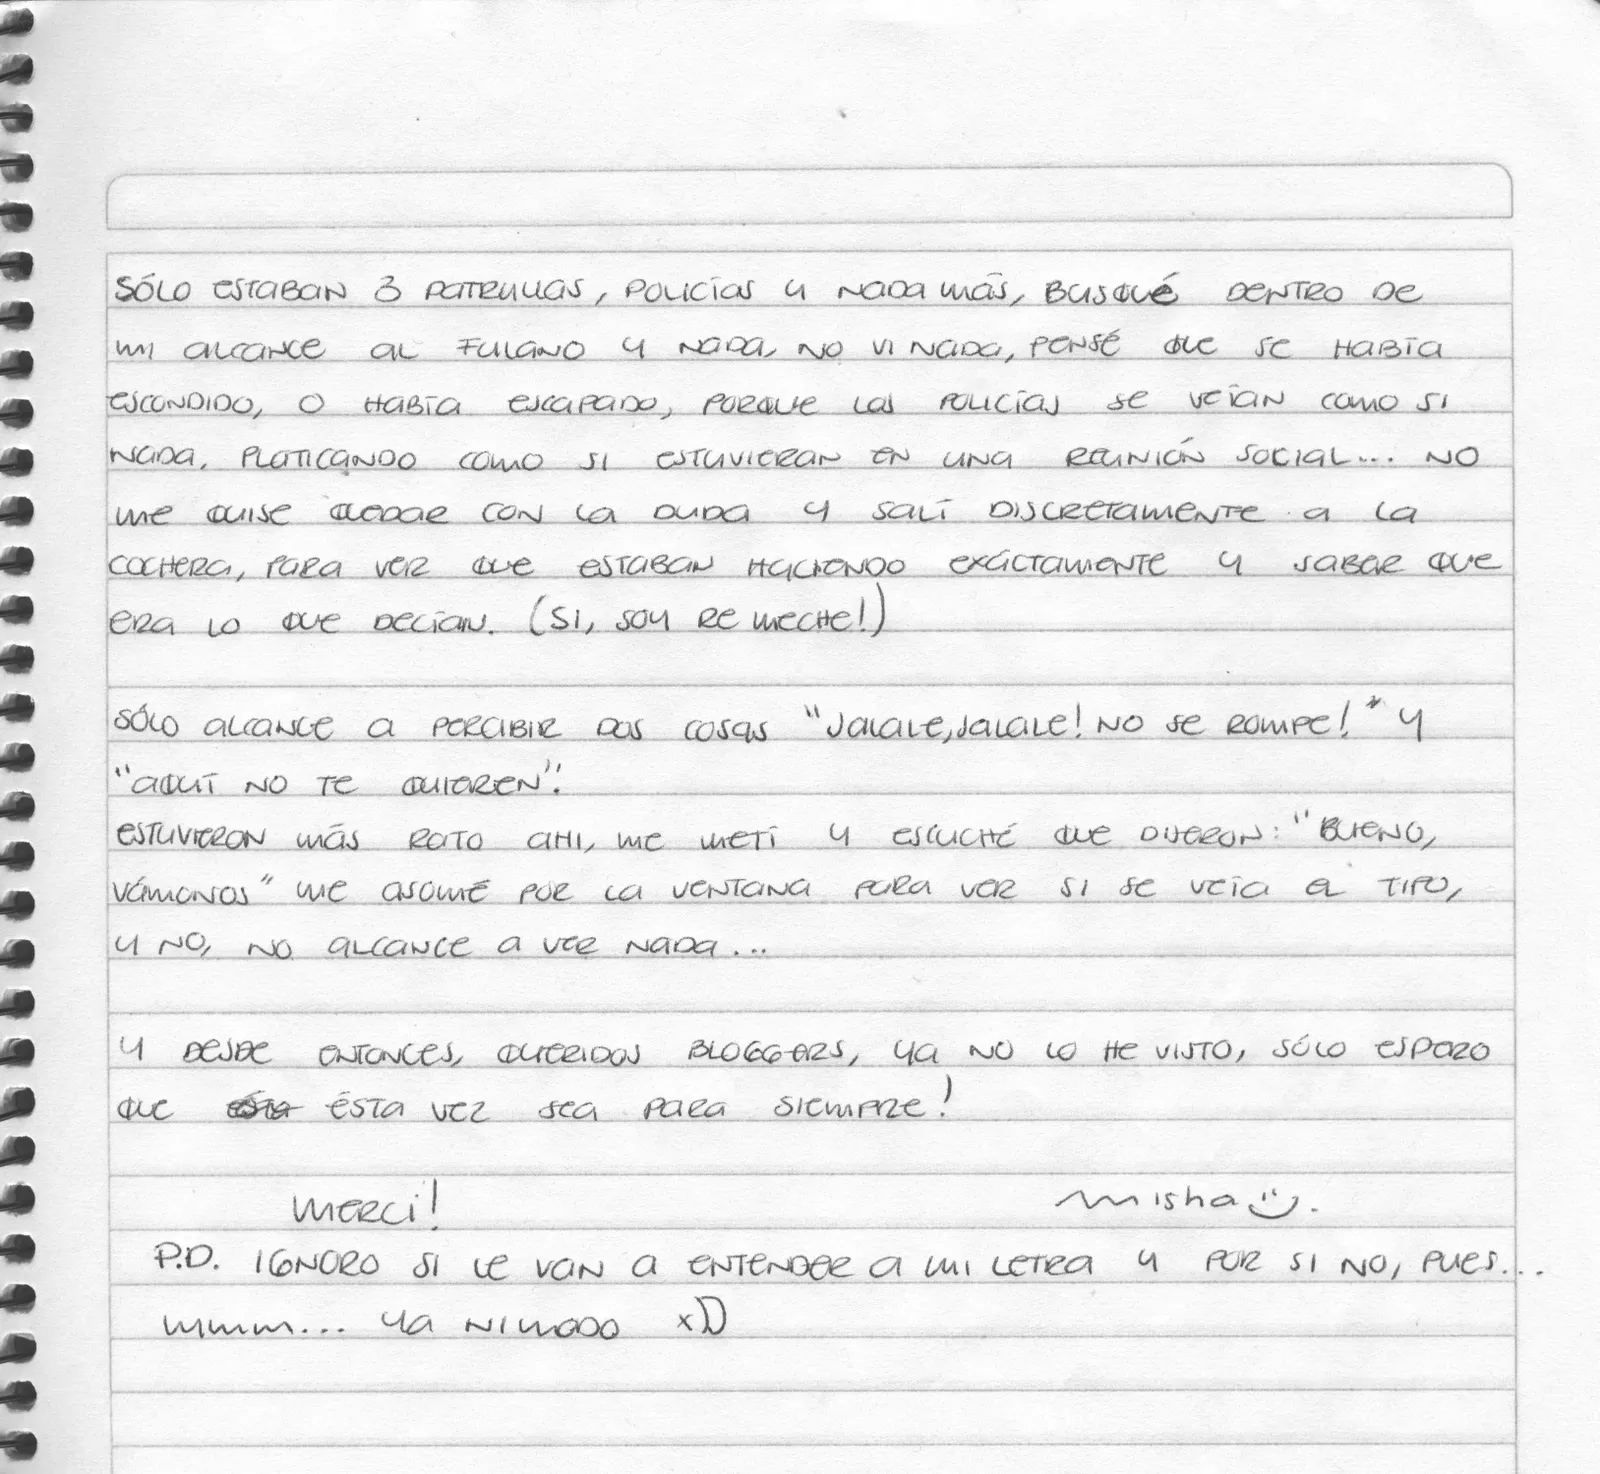 SÓLO ESTABAN 3 PATRULLAS, POLICÍAS Y NADA MÁS, BUSQUÉ DENTRO DE
MI ALCANCE AL FULANO Y NADA, NO VI NADA, PENSÉ QUE SE HABÍA
ESCONDIDO, O HABÍA ESCAPADO, PORQUE LOS POLICÍAS SE VEÍAN COMO SI
NADA, PLATICANDO COMO SI ESTUVIERAN EN UNA REUNIÓN SOCIAL... NO
ME QUISE QUEDAR CON LA DUDA Y SALÍ DISCRETAMENTE A LA
COCHERA, PARA VER QUE ESTABAN HACIENDO EXÁCTAMENTE Y SABER QUE
ERA LO QUE DECÍAN. (SI, SOY RE MECHE!)
SÓLO ALCANCE A PERCIBIR DOS COSAS "JALALE, JALALE! NO SE ROMPE!" Y
"AQUÍ NO TE QUIEREN".
ESTUVIERON MÁS RATO AHI, ME METÍ Y ESCUCHÉ QUE DIJERON: "BUENO,
VÁMONOS" ME ASOMÉ POR LA VENTANA PARA VER SI SE VEÍA EL TIPO,
Y NO, NO ALCANCE A VER NADA...
Y DESDE ENTONCES, QUERIDOS BLOGGERS, YA NO LO HE VISTO, SÓLO ESPERO
QUE ÉSTA VEZ SEA PARA SIEMPRE!
MERCI! Misha
P.D. IGNORO SI LE VAN A ENTENDER A MI LETRA Y POR SI NO, PUES...
MMMM... YA NI MODO xD